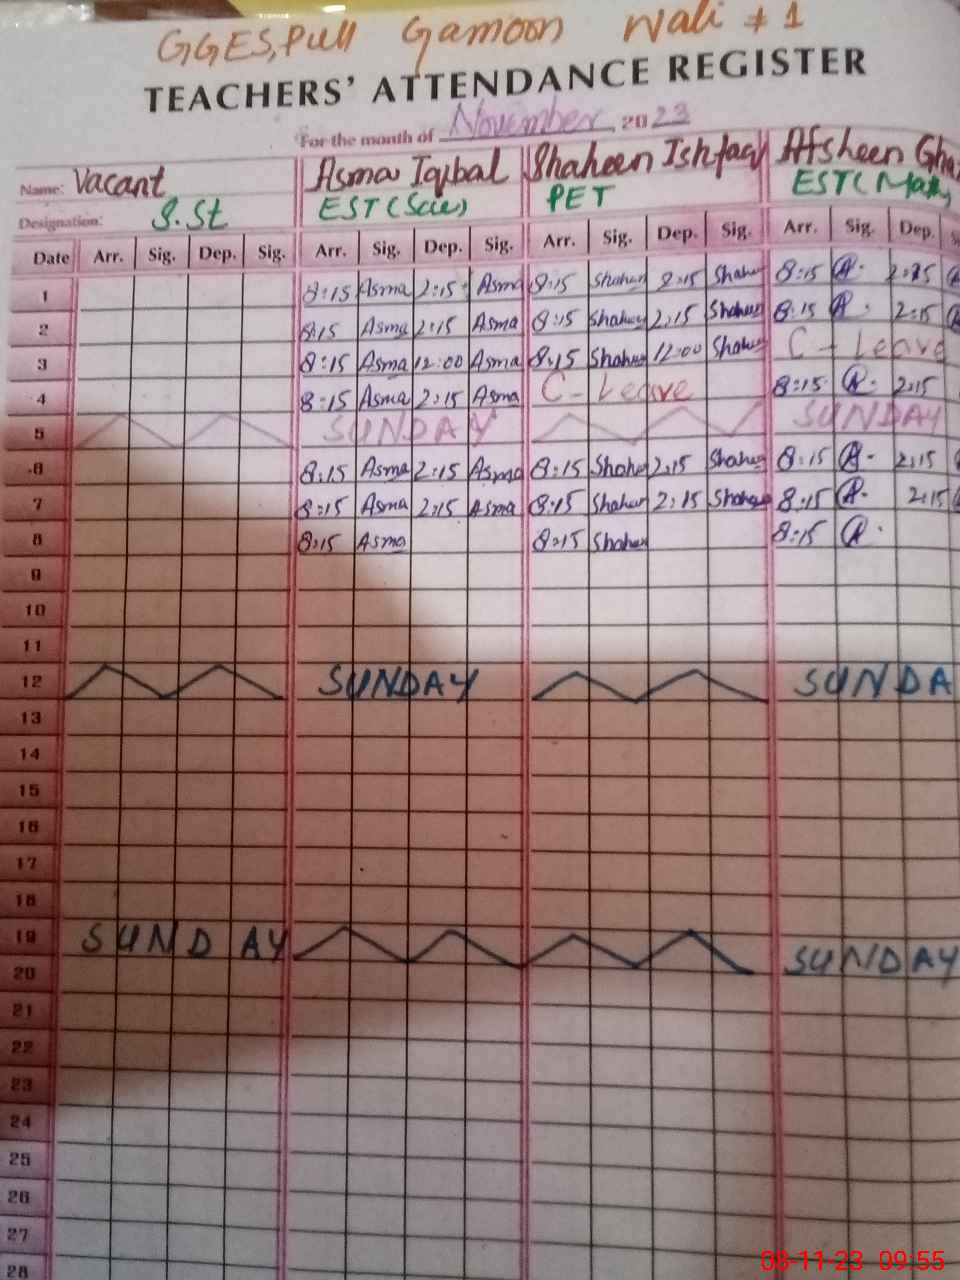 GGES, Pull Gamoon Wali # 1
TEACHERS' ATTENDANCE REGISTER
For the month of November 2023
Name: Vacant Asma Iqbal Shaheen Ishfaq Afsheen
Designation: S.St EST (Scie) PET EST (Math)
Date Arr. Sig. Dep. Sig. Arr. Sig. Dep. Sig. Arr. Sig. Dep. Sig. Arr. Sig. Dep.
1 8:15 Asma 2:15 Asma 8:15 Shaheen 8:15 Shaheen 8:15 A. 2:15
2 8:15 Asma 2:15 Asma 8:15 Shaheen 2:15 Shaheen 8:15 A. 2:15
3 8:15 Asma 12:00 Asma 8:15 Shaheen 12:00 Shaheen C - Leave
4 8:15 Asma 2:15 Asma C - Leave 8:15 A. 2:15
5 SUNDAY SUNDAY
6 8:15 Asma 2:15 Asma 8:15 Shaheen 2:15 Shaheen 8:15 A. 2:15
7 8:15 Asma 2:15 Asma 8:15 Shaheen 2:15 Shaheen 8:15 A. 2:15
8 8:15 Asma 8:15 Shaheen 8:15 A.
9
10
11
12 SUNDAY SUNDA
13
14
15
16
17
18
19 SUNDAY SUNDAY
20
21
22
23
24
25
26
27
28
08-11-23 09:55